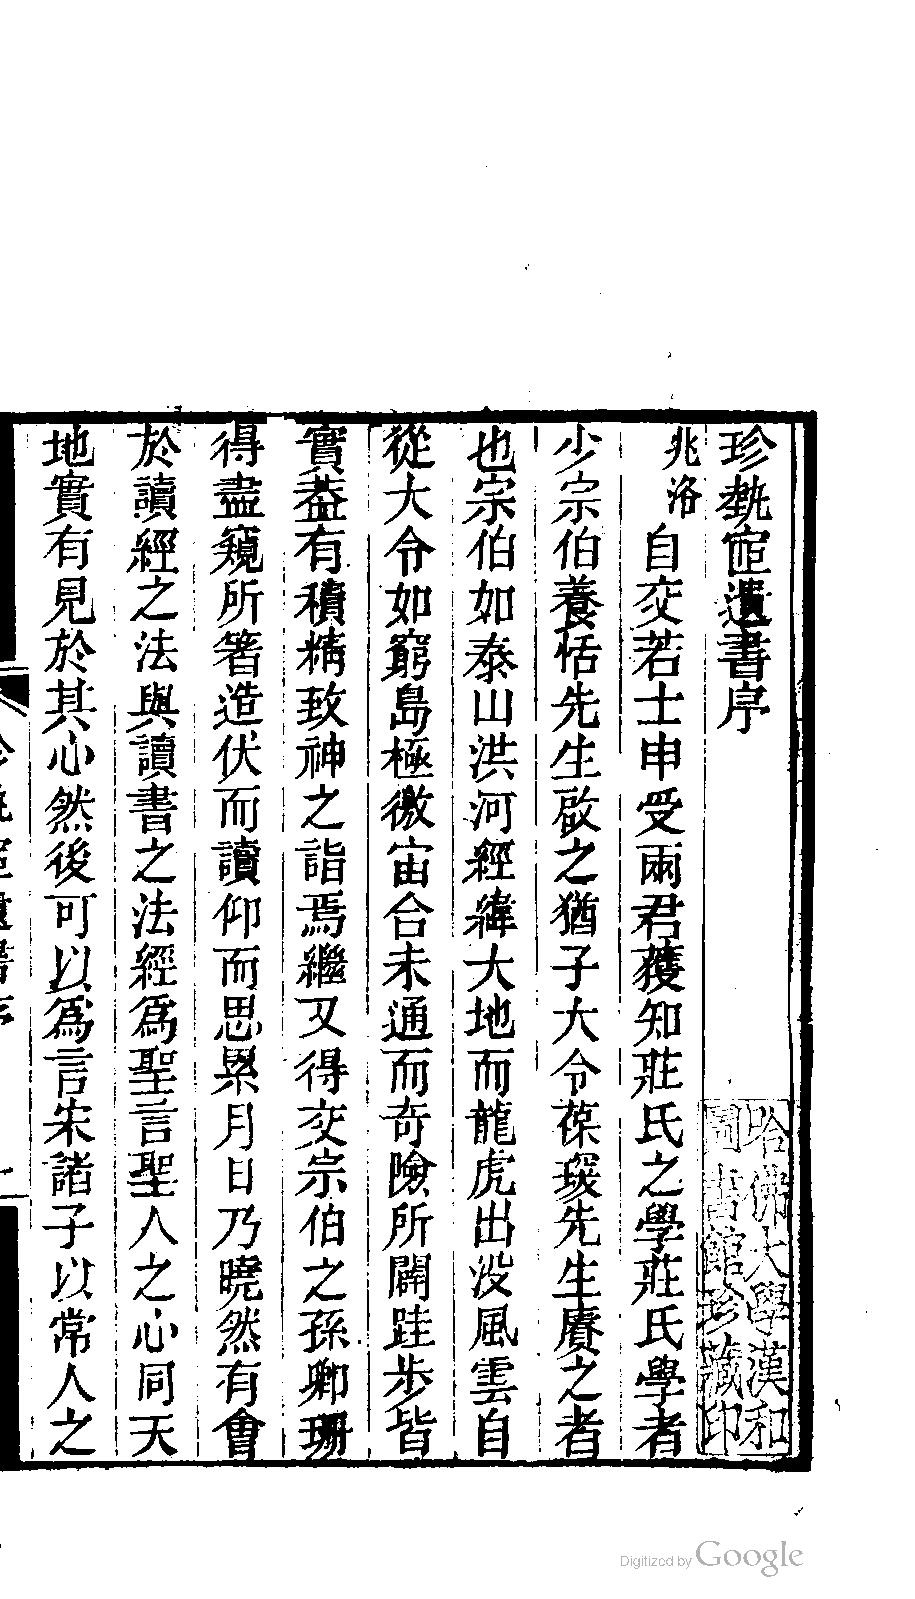 珍埶宧遺書序
兆洛自交若士申受兩君獲知莊氏之學莊氏學者
少宗伯養恬先生啟之猶子大令葆琛先生賡之者
也宗伯如泰山洪河經緯大地而龍虎出沒風雲自
從大令如窮島極徼宙合未通而奇險所闢跬步皆
實葢有積精致神之詣焉繼又得交宗伯之孫卿珊
得盡窺所箸造伏而讀仰而思累月日乃曉然有會
於讀經之法與讀書之法經爲聖言聖人之心同天
地實有見於其心然後可以爲言宋諸子以常人之
哈佛大學漢和
圖書館珍藏印
Digitized by Google